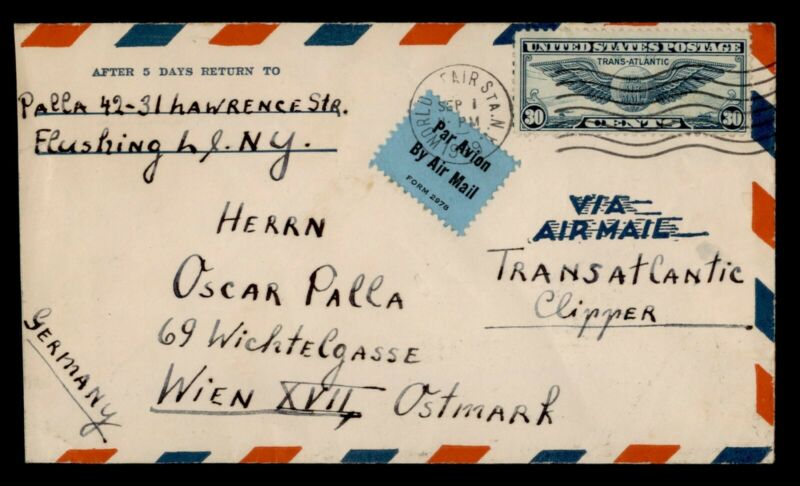 AFTER 5 DAYS RETURN TO
Palla 42-31 Lawrence Str.
Flushing L.I. N.Y.
FAIR STA. N.
SEP 1
PM
UNITED STATES POSTAGE
TRANS-ATLANTIC
30 CENTS 30
Par Avion
By Air Mail
FORM 2978
VIA
AIR MAIL
TRANSATLANTIC
Clipper
HERRN
OSCAR PALLA
69 Wichtelgasse
WIEN XVII, OSTMARK
GERMANY